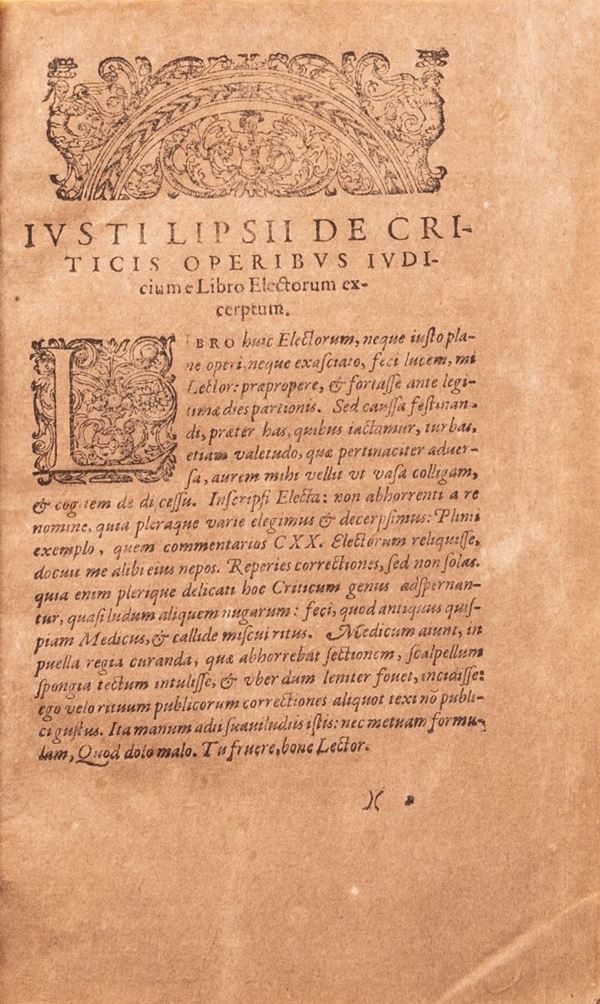 IVSTI LIPSII DE CRI-
TICIS OPERIBVS IVDI-
cium e Libro Electorum ex-
cerptum.
LIBRO huic Electorum, neque iusto pla-
ne operi, neque exasciato, feci lucem, mi
Lector: præpropere, & fortasse ante legi-
timæ dies partionis. Sed caussa festinan-
di, præter has, quibus iactamur, turbas,
etiam valetudo, quæ pertinaciter aduer-
sa, aurem mihi vellit vt vasa colligam,
& cogitem de discessu. Inscripsi Electa: non abhorrenti a re
nomine, quia pleraque varie elegimus & decerpsimus: Plinii
exemplo, quem commentarios CXX. Electorum reliquisse,
docuit me alibi eius nepos. Reperies correctiones, sed non solas.
quia enim plerique delicati hoc Criticum genus adspernan-
tur, quasi ludum aliquem nugarum: feci, quod antiquus quis-
piam Medicus, & callide miscui ritus. Medicum aiunt, in
puella regia curanda, quæ abhorrebat sectionem, scalpellum
spongia tectum intulisse, & vber dum leniter fouet, incidisse:
ego velo rituum publicorum correctiones aliquot texi nō publi-
ci gustus. Ita manum adii suauiludiis istis: nec metuam formu-
lam, Quod dolo malo. Tu fruere, bone Lector.